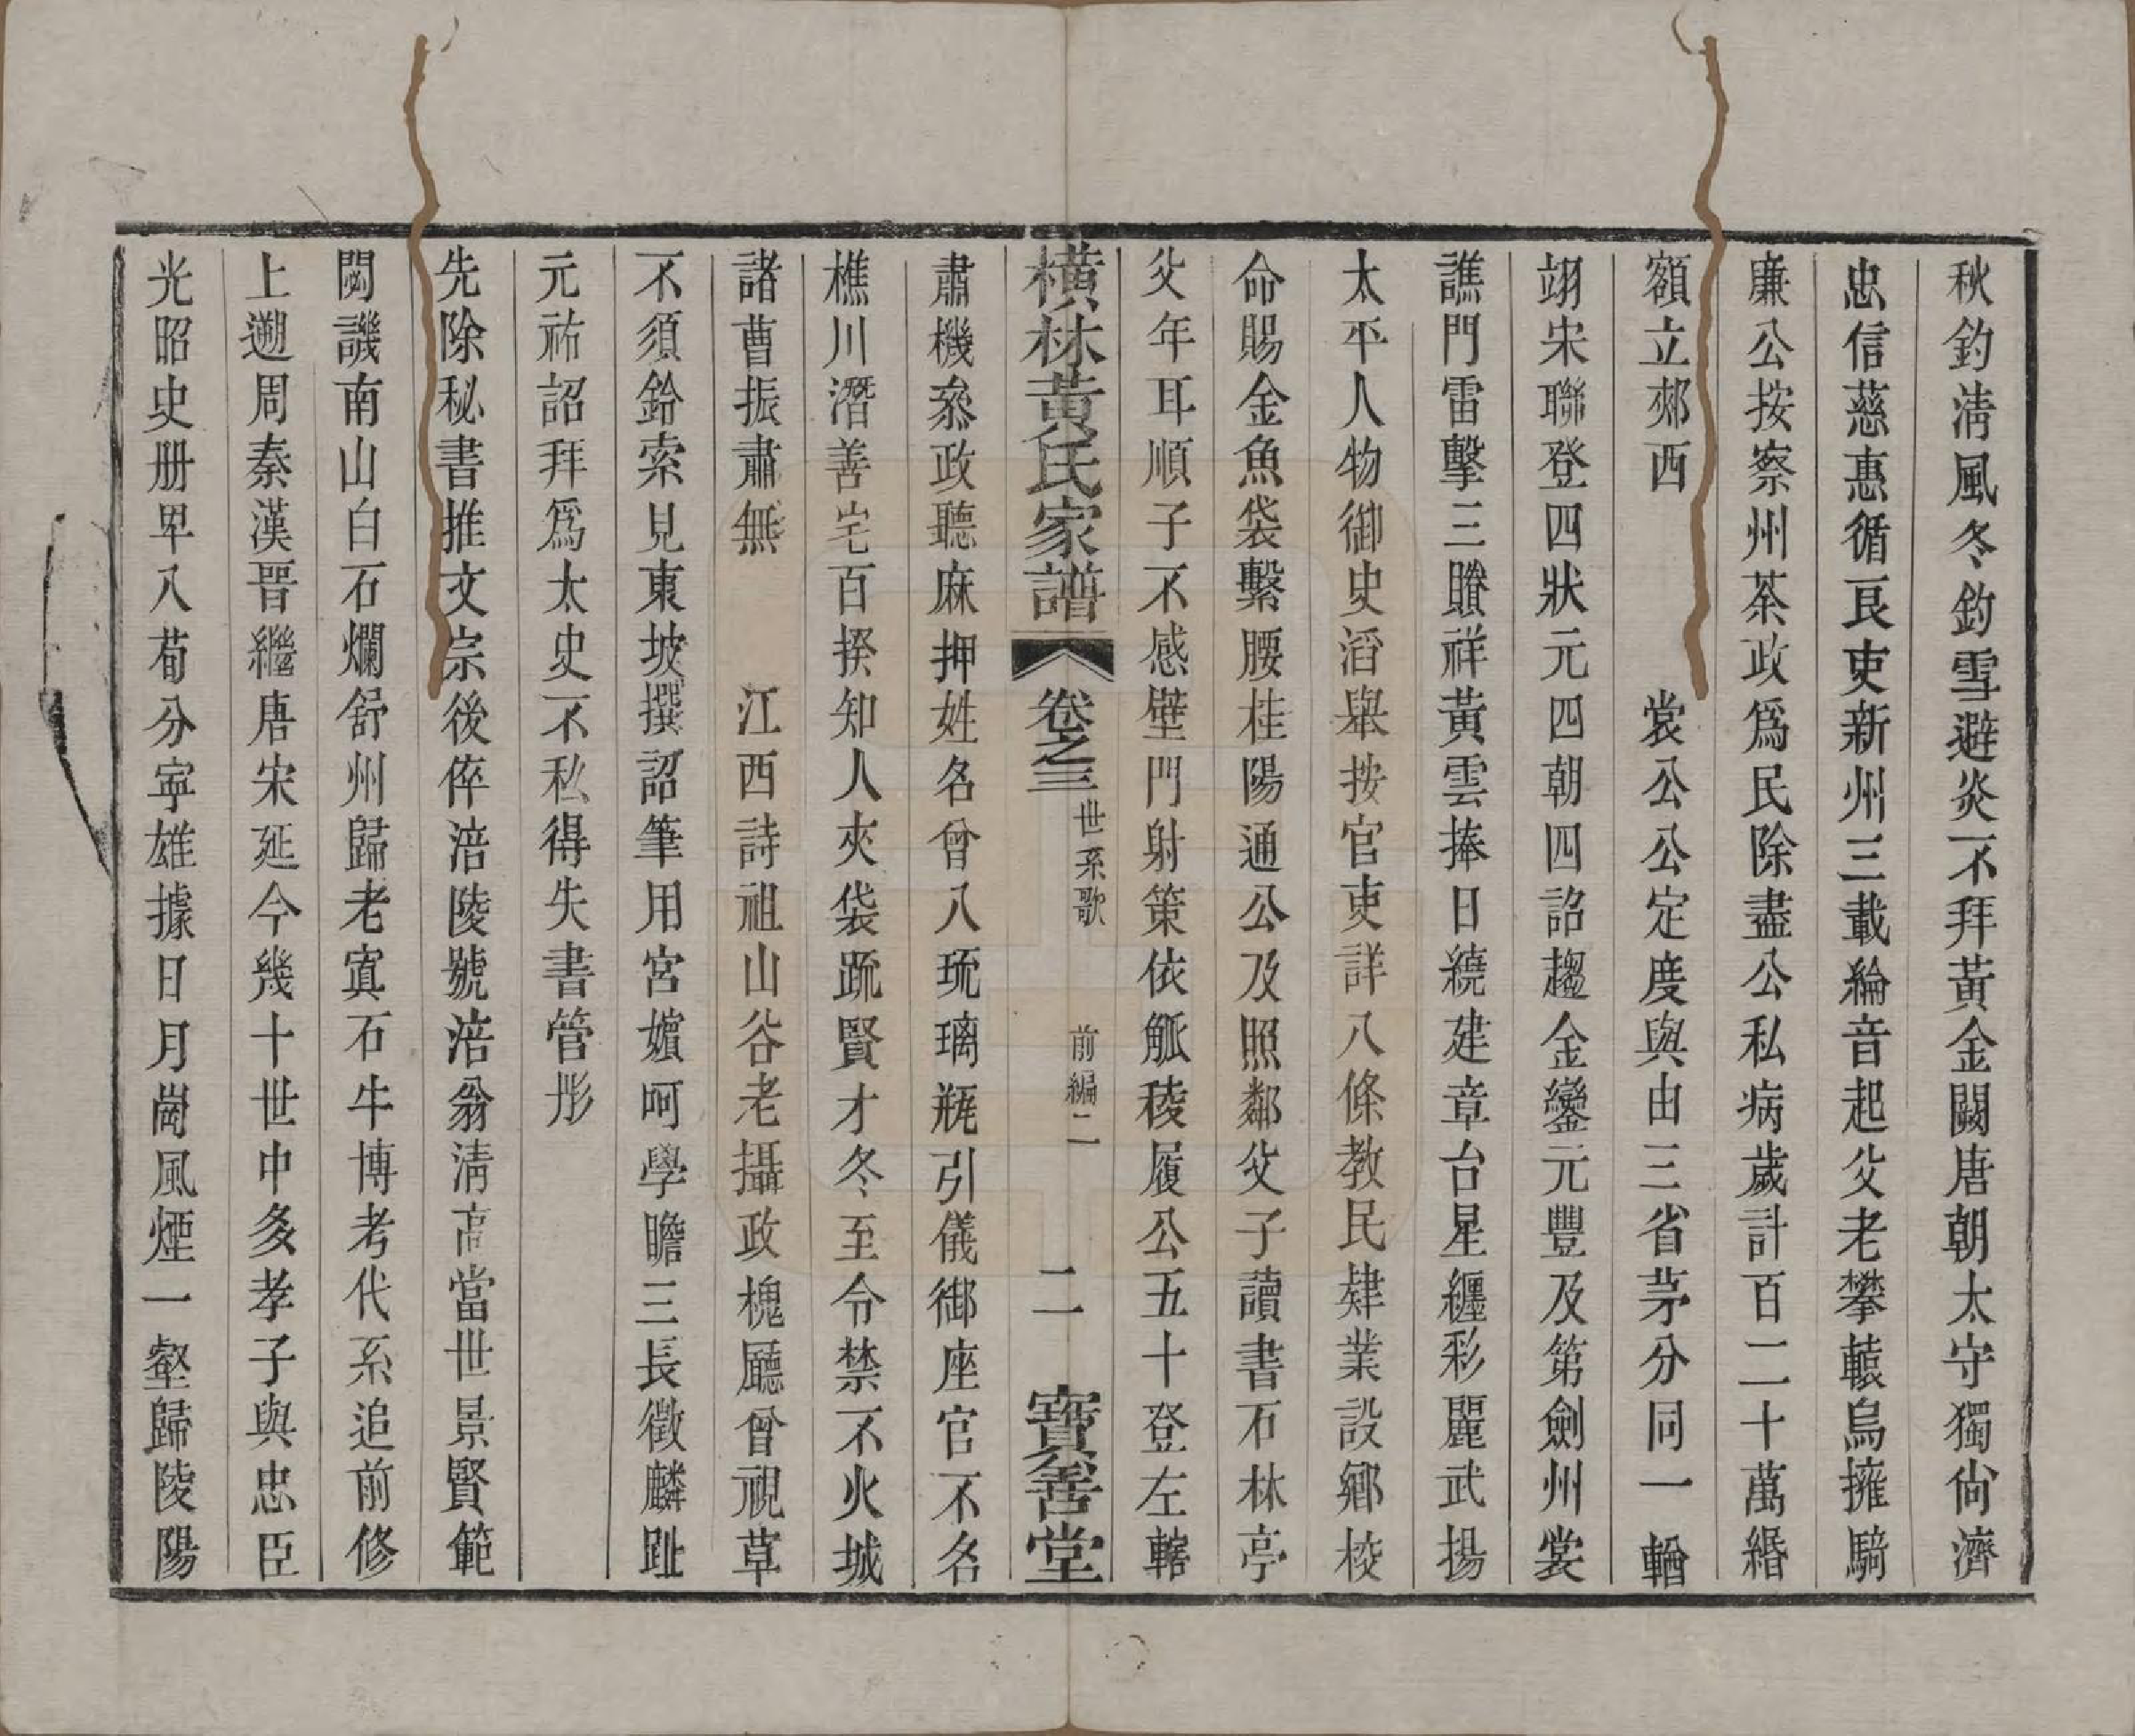 秋釣清風冬釣雪避炎不拜黃金闕唐朝太守獨尙濟
忠信慈惠循良吏新州三載綸音起父老攀轅烏擁騎
廉公按察州茶政爲民除盡公私病歲計百二十萬緡
額立郊西　　裳公公定度與由三省茅分同一輶
翊宋聯登四狀元四朝四詔趨金鑾元豐及第劍州裳
譙門雷擊三賸祥黃雲捧日繞建章台星纏彩麗武揚
太平人物御史滔舉按官吏詳八條教民肄業設鄉校
命賜金魚袋繫腰桂陽通公及照鄰父子讀書石林亭
父年耳順子不惑璧門射策依觚稜履公五十登左轄
橫林黃氏家譜　卷之三　世系歌　前編二　二　寶善堂
肅機叅政聽麻押姓名曾入琉璃瓶引儀御座官不名
樵川潛善宅百揆知人夾袋疏賢才冬至令禁不火城
諸曹振肅無　　江西詩祖山谷老攝政槐廳曾視草
不須鈴索見東坡撰詔筆用宮嬪呵學瞻三長徵麟趾
元祐詔拜爲太史不私得失書管彤
先除秘書推文宗後倅涪陵號涪翁清高當世景賢範
閟譏南山白石爛舒州歸老寘石牛博考代系追前修
上遡周秦漢晉繼唐宋延今幾十世中多孝子與忠臣
光昭史册卑八荀分寧雄據日月崗風煙一壑歸陵陽